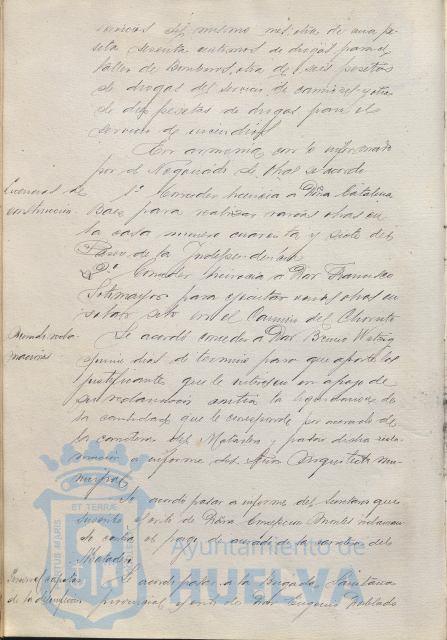 servicios del mismo mes, otra de una pe-
seta sesenta centimos de drogas para el
taller de Bomberos, otra de seis pesetas
de drogas del servicio de caminos y otra
de diez pesetas de drogas para el
servicio de incendios
En armonia con lo informado
por el Negociado de Obras se acordó
Licencias de
construccion
1º Conceder licencia a Doña Catalina
para realizar varias obras en
la casa numero cuarenta y siete del
Paseo de la Independencia
2º Conceder licencia a Don Francisco
Sotomayor para ejecutar varias obras en
solar sito en el Camino del
Se acordó conceder a Don
quince dias de termino para que aporte los
justificantes que le interesen en apoyo de
su reclamacion contra la liquidacion de
la cantidad que le corresponde por acerado de
la carretera del Matadero y pasar dicha recla-
macion a informe del Señor Arquitecto mu-
nicipal
Se acordó pasar a informe del Secretario que
suscribe de Doña Concepcion Montes reclaman-
do contra el pago de acerado de la carretera del
Matadero
Se acordó pasar a la Brigada Sanitaria
provincial de Don Eugenio
ET TERRÆ
PORTUS MARIS
Ayuntamiento de
HUELVA